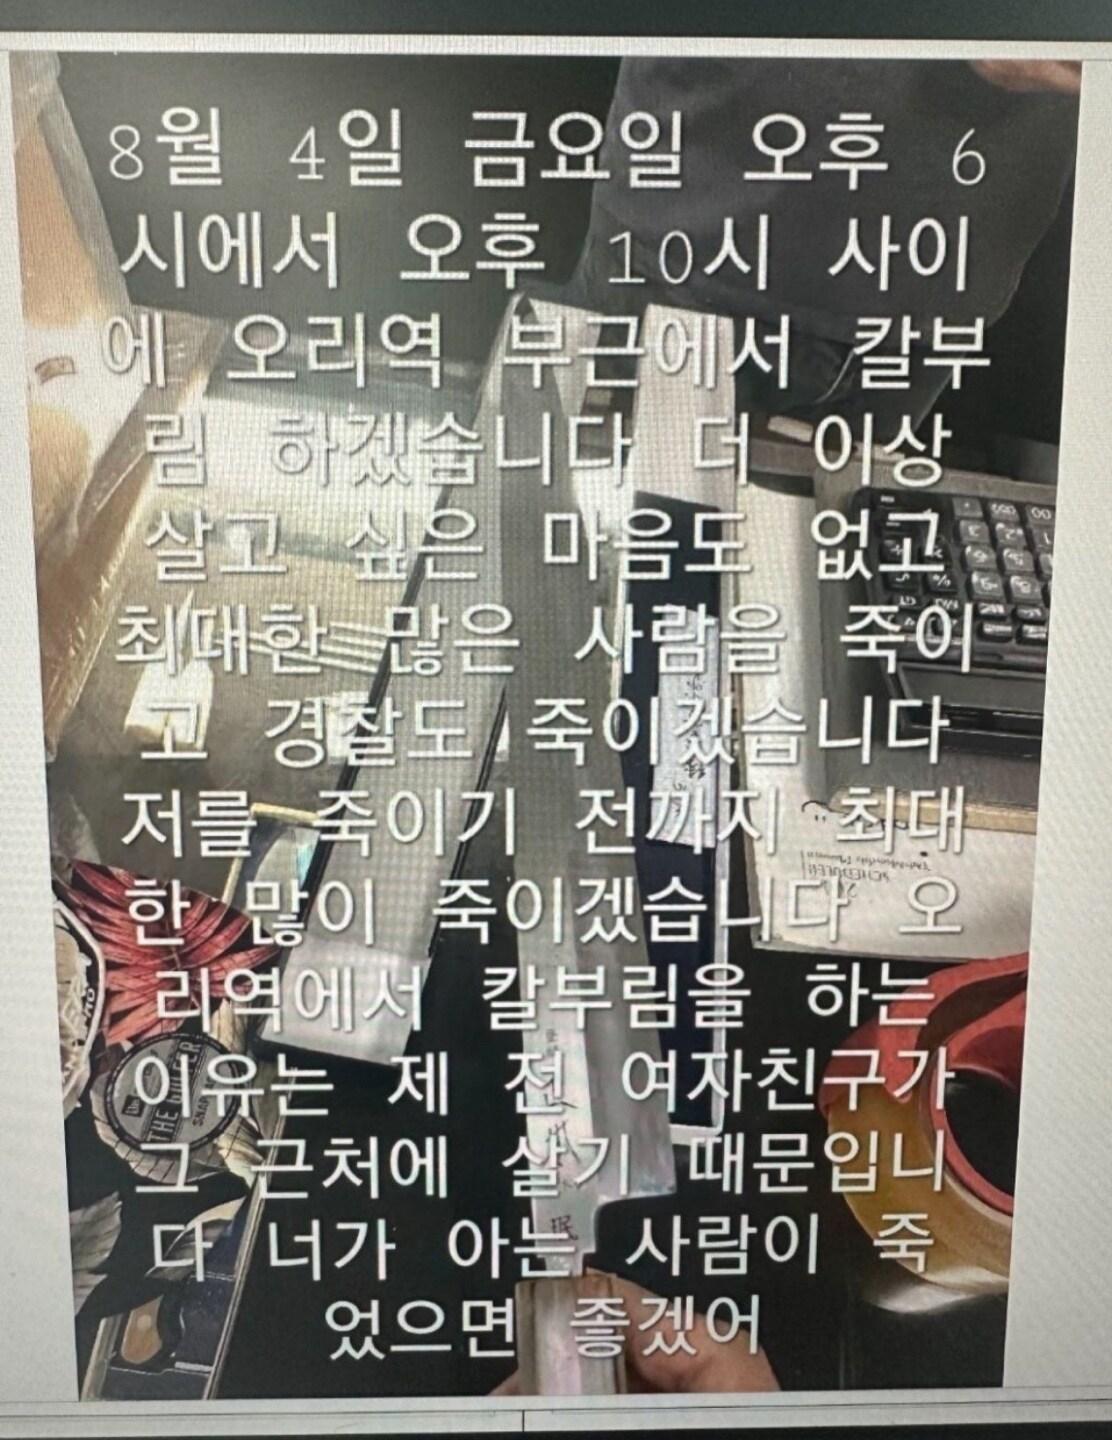 8월 4일 금요일 오후 6
시에서 오후 10시 사이
에 오리역 부근에서 칼부
림 하겠습니다 더 이상
살고 싶은 마음도 없고
최대한 많은 사람을 죽이
고 경찰도 죽이겠습니다
저를 죽이기 전까지 최대
한 많이 죽이겠습니다 오
리역에서 칼부림을 하는
이유는 제 전 여자친구가
그 근처에 살기 때문입니
다 너가 아는 사람이 죽
었으면 좋겠어
SCHEDULER
THE